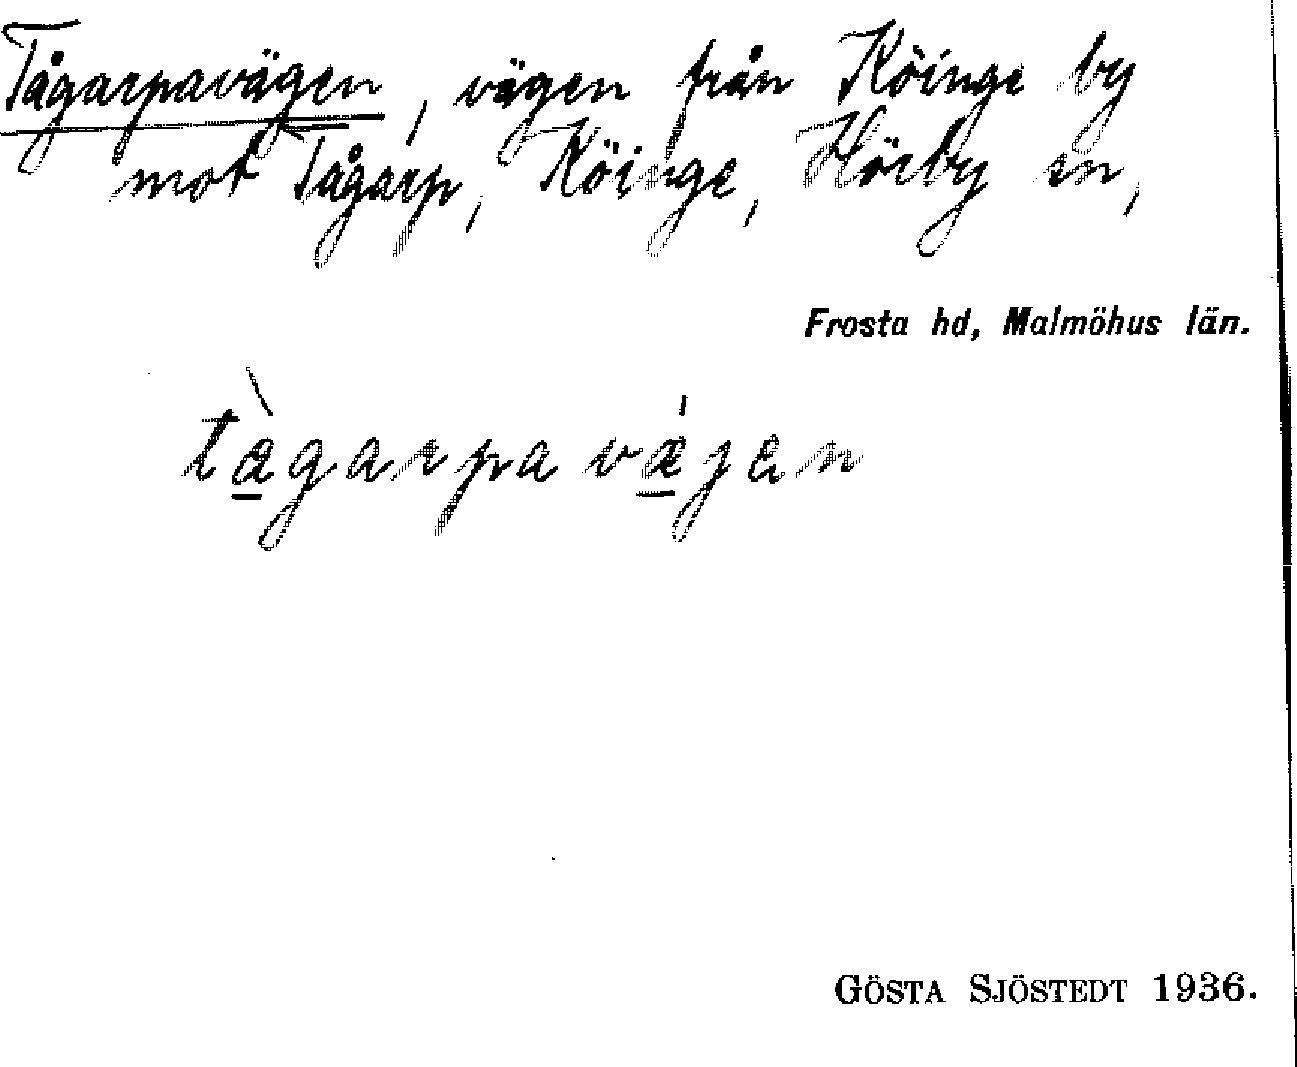 Tågarpavägen, vägen från Köinge by
mot Tågarp, Köinge, Hörby sn,
Frosta hd, Malmöhus län.
tàgarpa vǽjen
GÖSTA SJÖSTEDT 1936.